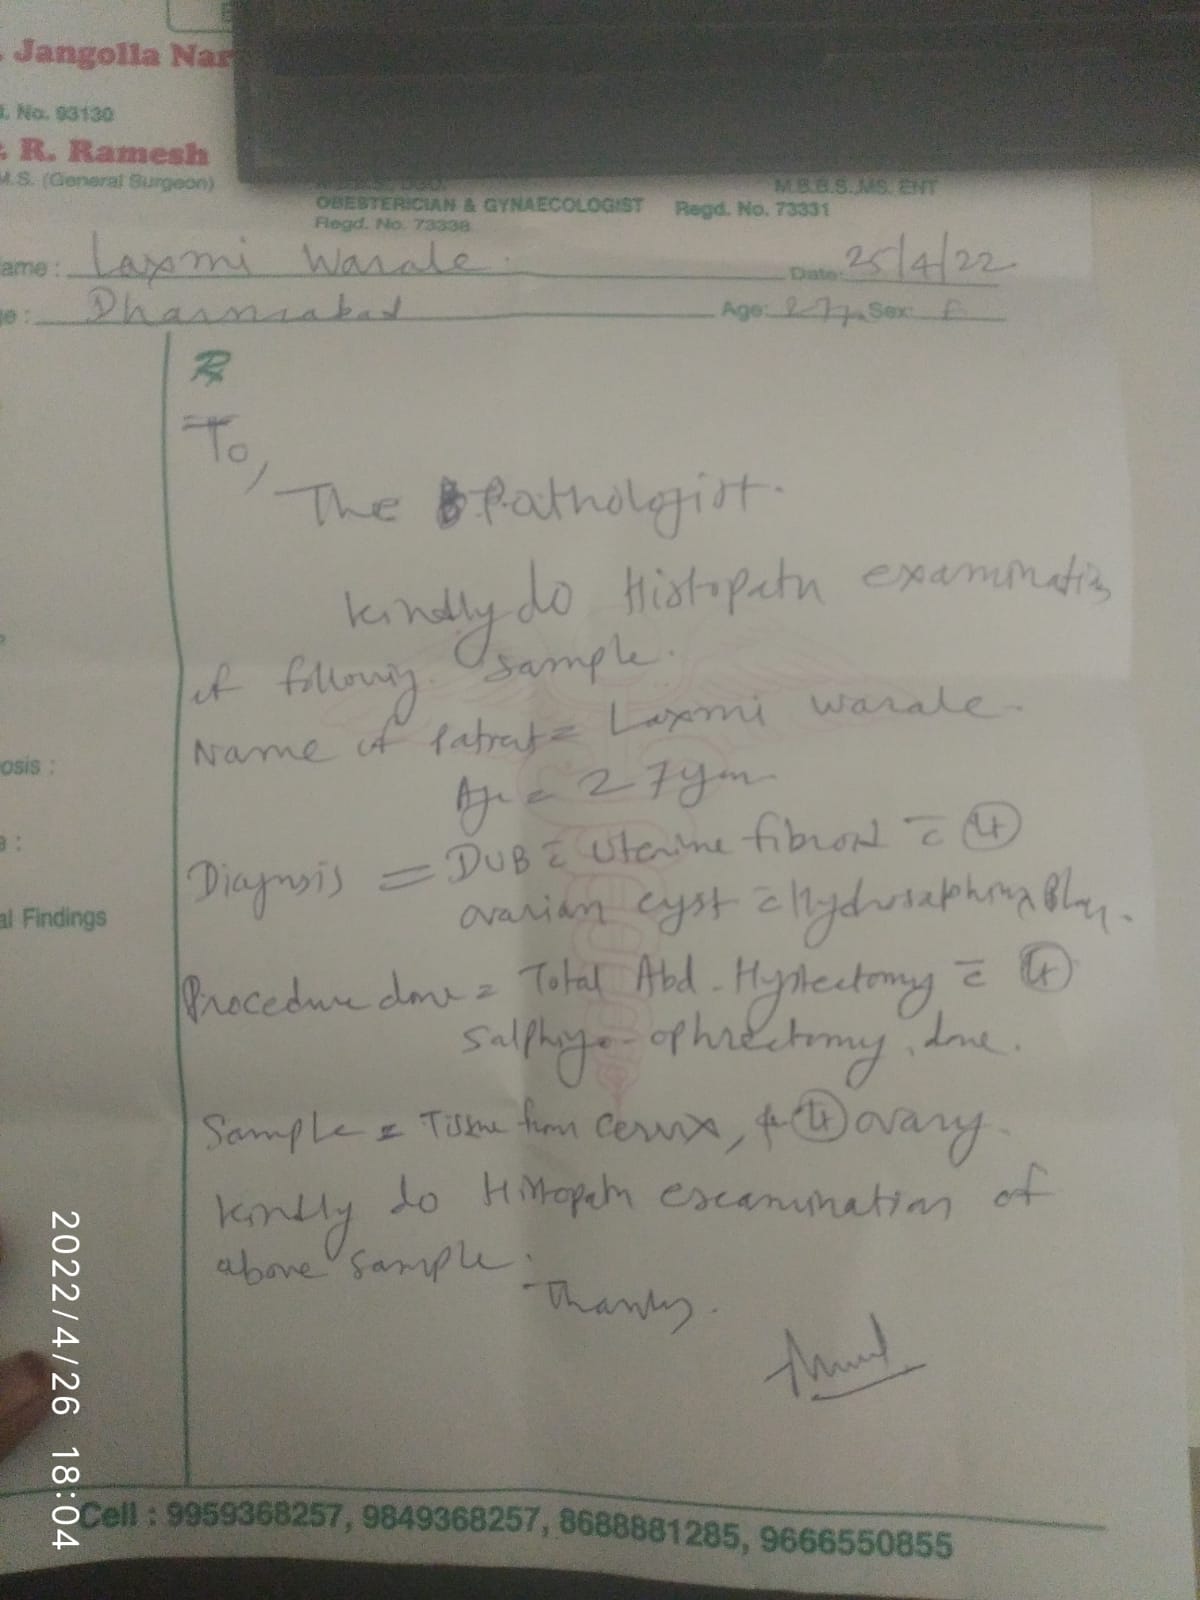 Jangolla Nar
. No. 93130
. R. Ramesh
M.S. (General Surgeon)
OBESTERICIAN & GYNAECOLOGIST
Regd. No. 73338
M.B.B.S.,MS. ENT
Regd. No. 73331
ame : Laxmi Warale Date: 25/4/22
e : Dharmabad Age: 27 Sex: F
Rx
To,
The Pathologist.
kindly do Histopath examination
of following sample.
Name of Patient = Laxmi warale
Age = 27 years
Diagnosis = DUB c̄ Uterine fibroid c̄ Lt
ovarian cyst c̄ Hydrosalphinx
Procedure done = Total Abd. Hystectomy c̄ Lt
salphingo-ophrectomy done.
Sample = Tissue from cervix, & Lt ovary
kindly do Histopath examination of
above sample.
Thanks.
osis :
al Findings
2022/4/26 18:04
Cell : 9959368257, 9849368257, 8688881285, 9666550855